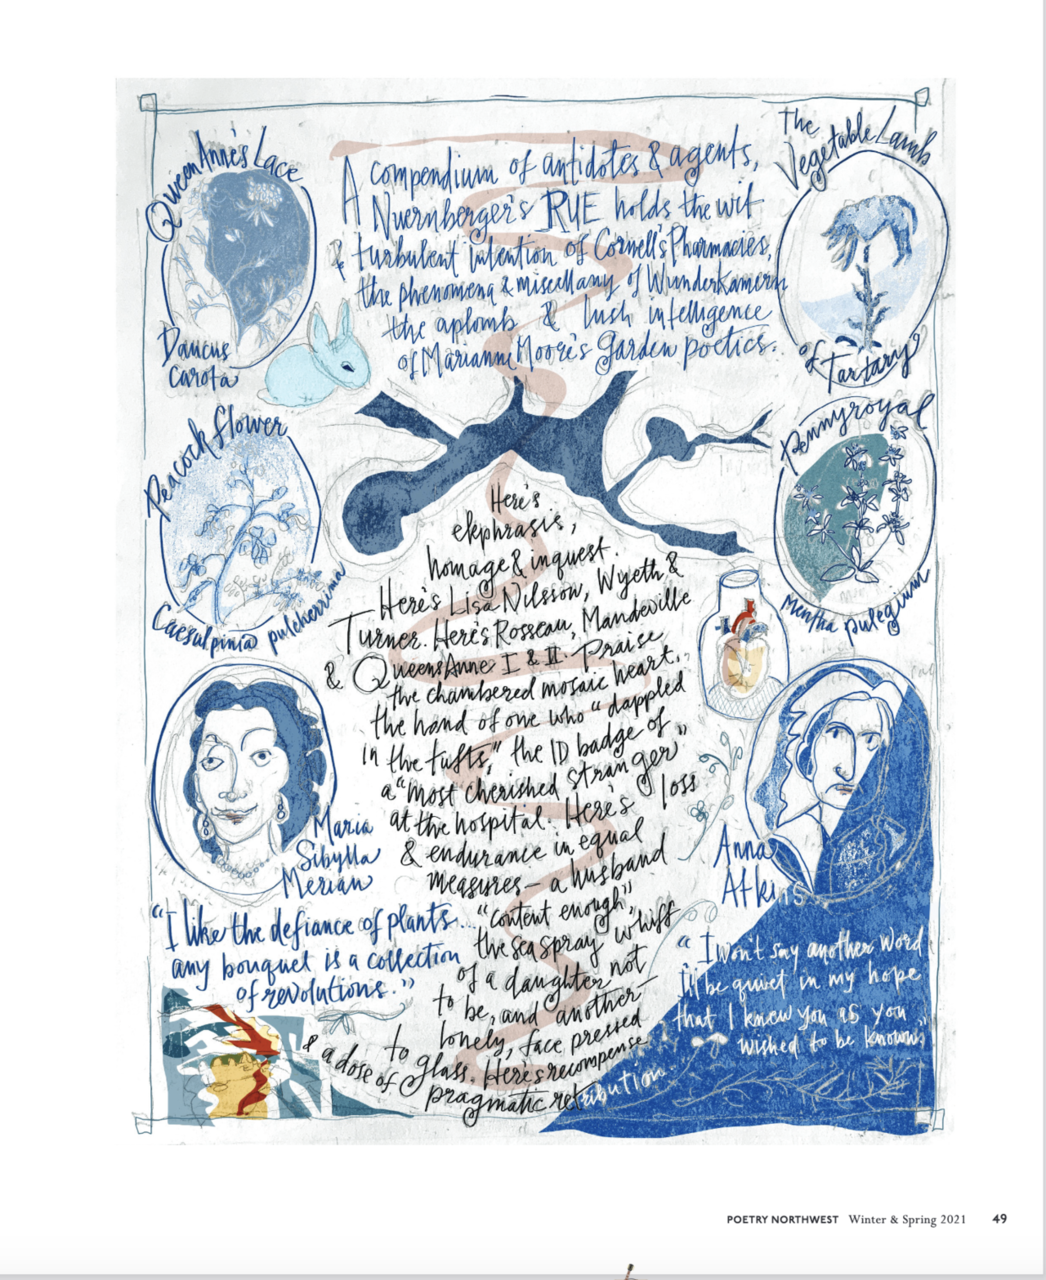 Queen Anne's Lace
Daucus
Carota
The
Vegetable Lamb
of Tartary
A compendium of antidotes & agents,
Nuernberger's RUE holds the wit
& turbulent intention of Cornell's Pharmacies,
the phenomena & miscellany of Wunderkamern
the aplomb & lush intelligence
of Marianne Moore's garden poetics.
Peacock flower
Caesalpinia pulcherrima
Pennyroyal
Mentha pulegium
Here's
ekphrasis,
homage & inquest.
Here's Lisa Nilsson, Wyeth &
Turner. Here's Rosseau, Mandeville
& Queens Anne I & II. Praise
the chambered mosaic heart,
the hand of one who "dappled
in the tufts," the ID badge of
a "most cherished stranger"
at the hospital. Here's loss
& endurance in equal
measures – a husband
"content enough,"
the sea spray whiff
of a daughter not
to be, and another
lonely, face pressed
to glass. Here's recompense
& a dose of
pragmatic retribution.
Maria
Sibylla
Merian
"I like the defiance of plants...
any bouquet is a collection
of revolutions."
Anna
Atkins
"I won't say another word
I'll be quiet in my hope
that I knew you as you
wished to be known"
POETRY NORTHWEST Winter & Spring 2021 49